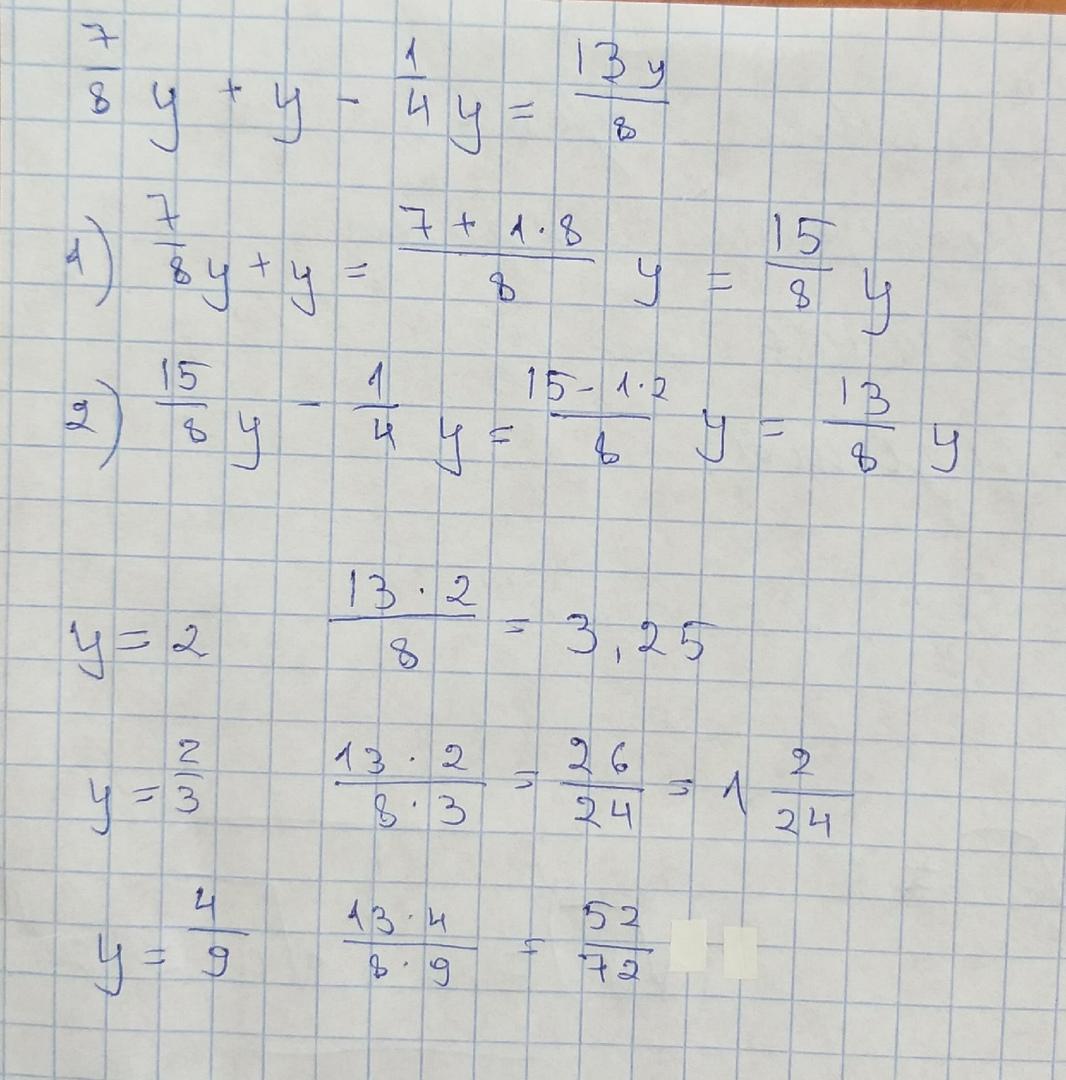 7/8 y + y - 1/4 y = 13y/8
1) 7/8 y + y = (7 + 1·8)/8 y = 15/8 y
2) 15/8 y - 1/4 y = (15 - 1·2)/8 y = 13/8 y
y = 2 (13 · 2)/8 = 3,25
y = 2/3 (13 · 2)/(8 · 3) = 26/24 = 1 2/24
y = 4/9 (13 · 4)/(8 · 9) = 52/72